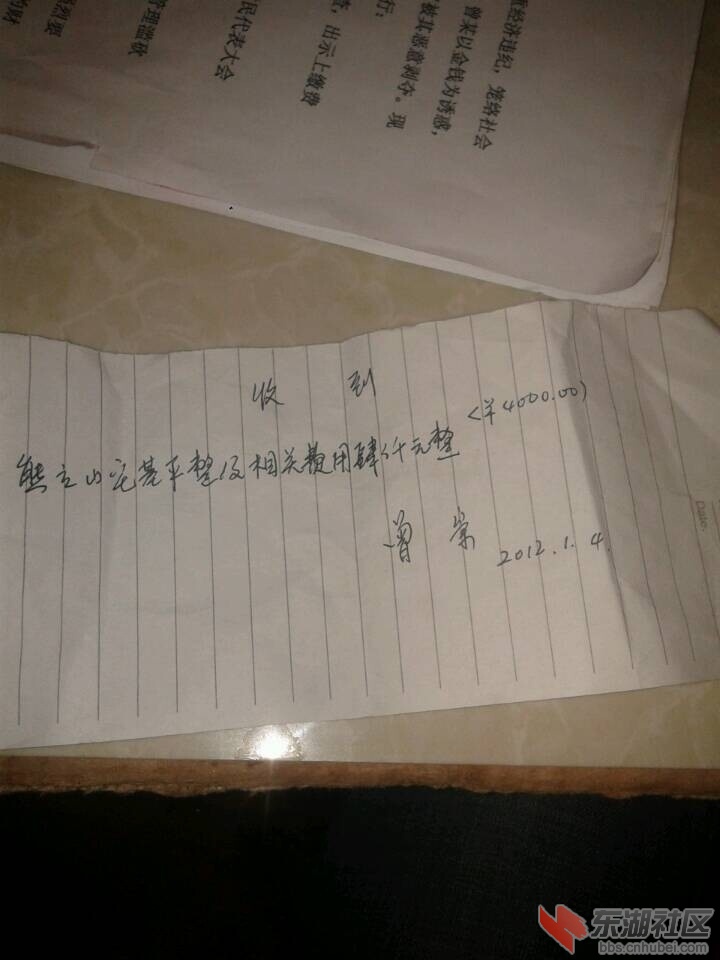 重经济违纪，笼络社会
曾来以金钱为诱惑，
被执恶意剥夺。现
行：
意，出示上缴费
民代表大会
管理滥砍
强烈要
的财
收 到
熊立山宅基平整及相关费用肆仟元整
<￥4000.00>
曾 崇
2012.1.4.
Date:
东湖社区
bbs.cnhubei.com